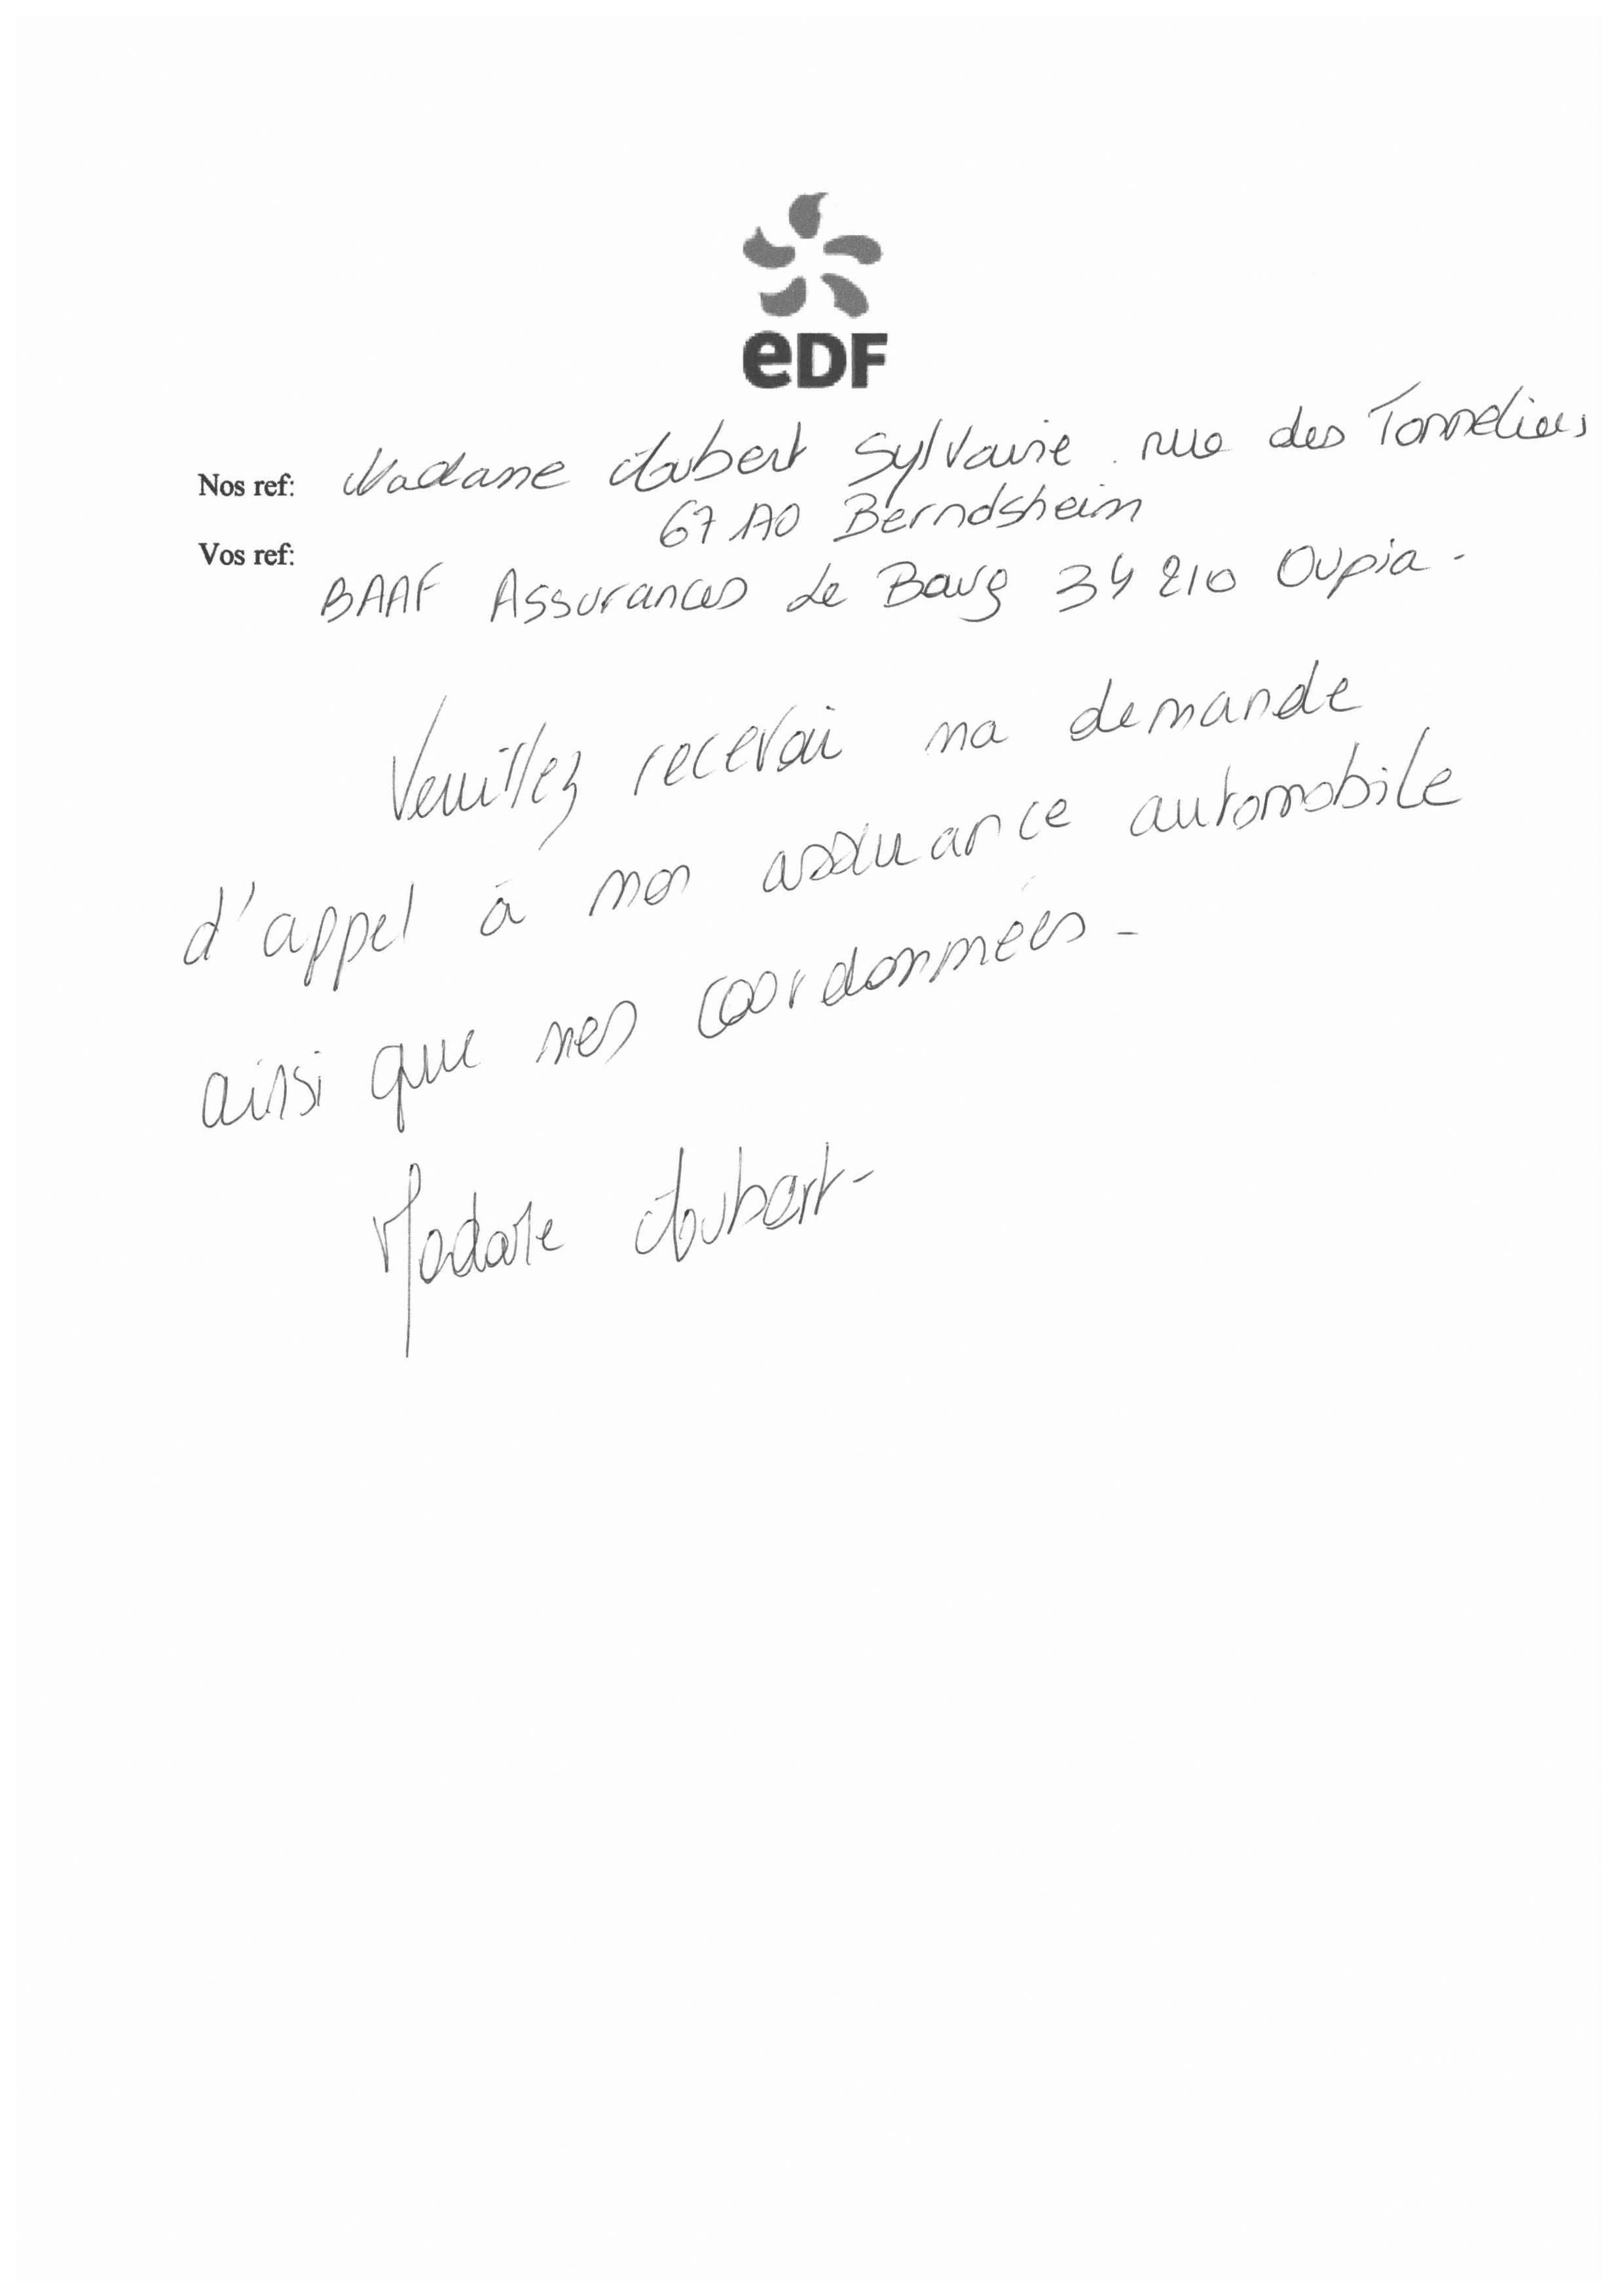 eDF
Nos ref: Madame Joubert Sylvaine rue des Tonneliers
67170 Berndsheim
Vos ref:
BAAF Assurances Le Bourg 34210 Oupia -
Veuillez recevoir ma demande
d'appel à mon assurance automobile
ainsi que mes coordonnées -
Madame Joubert -